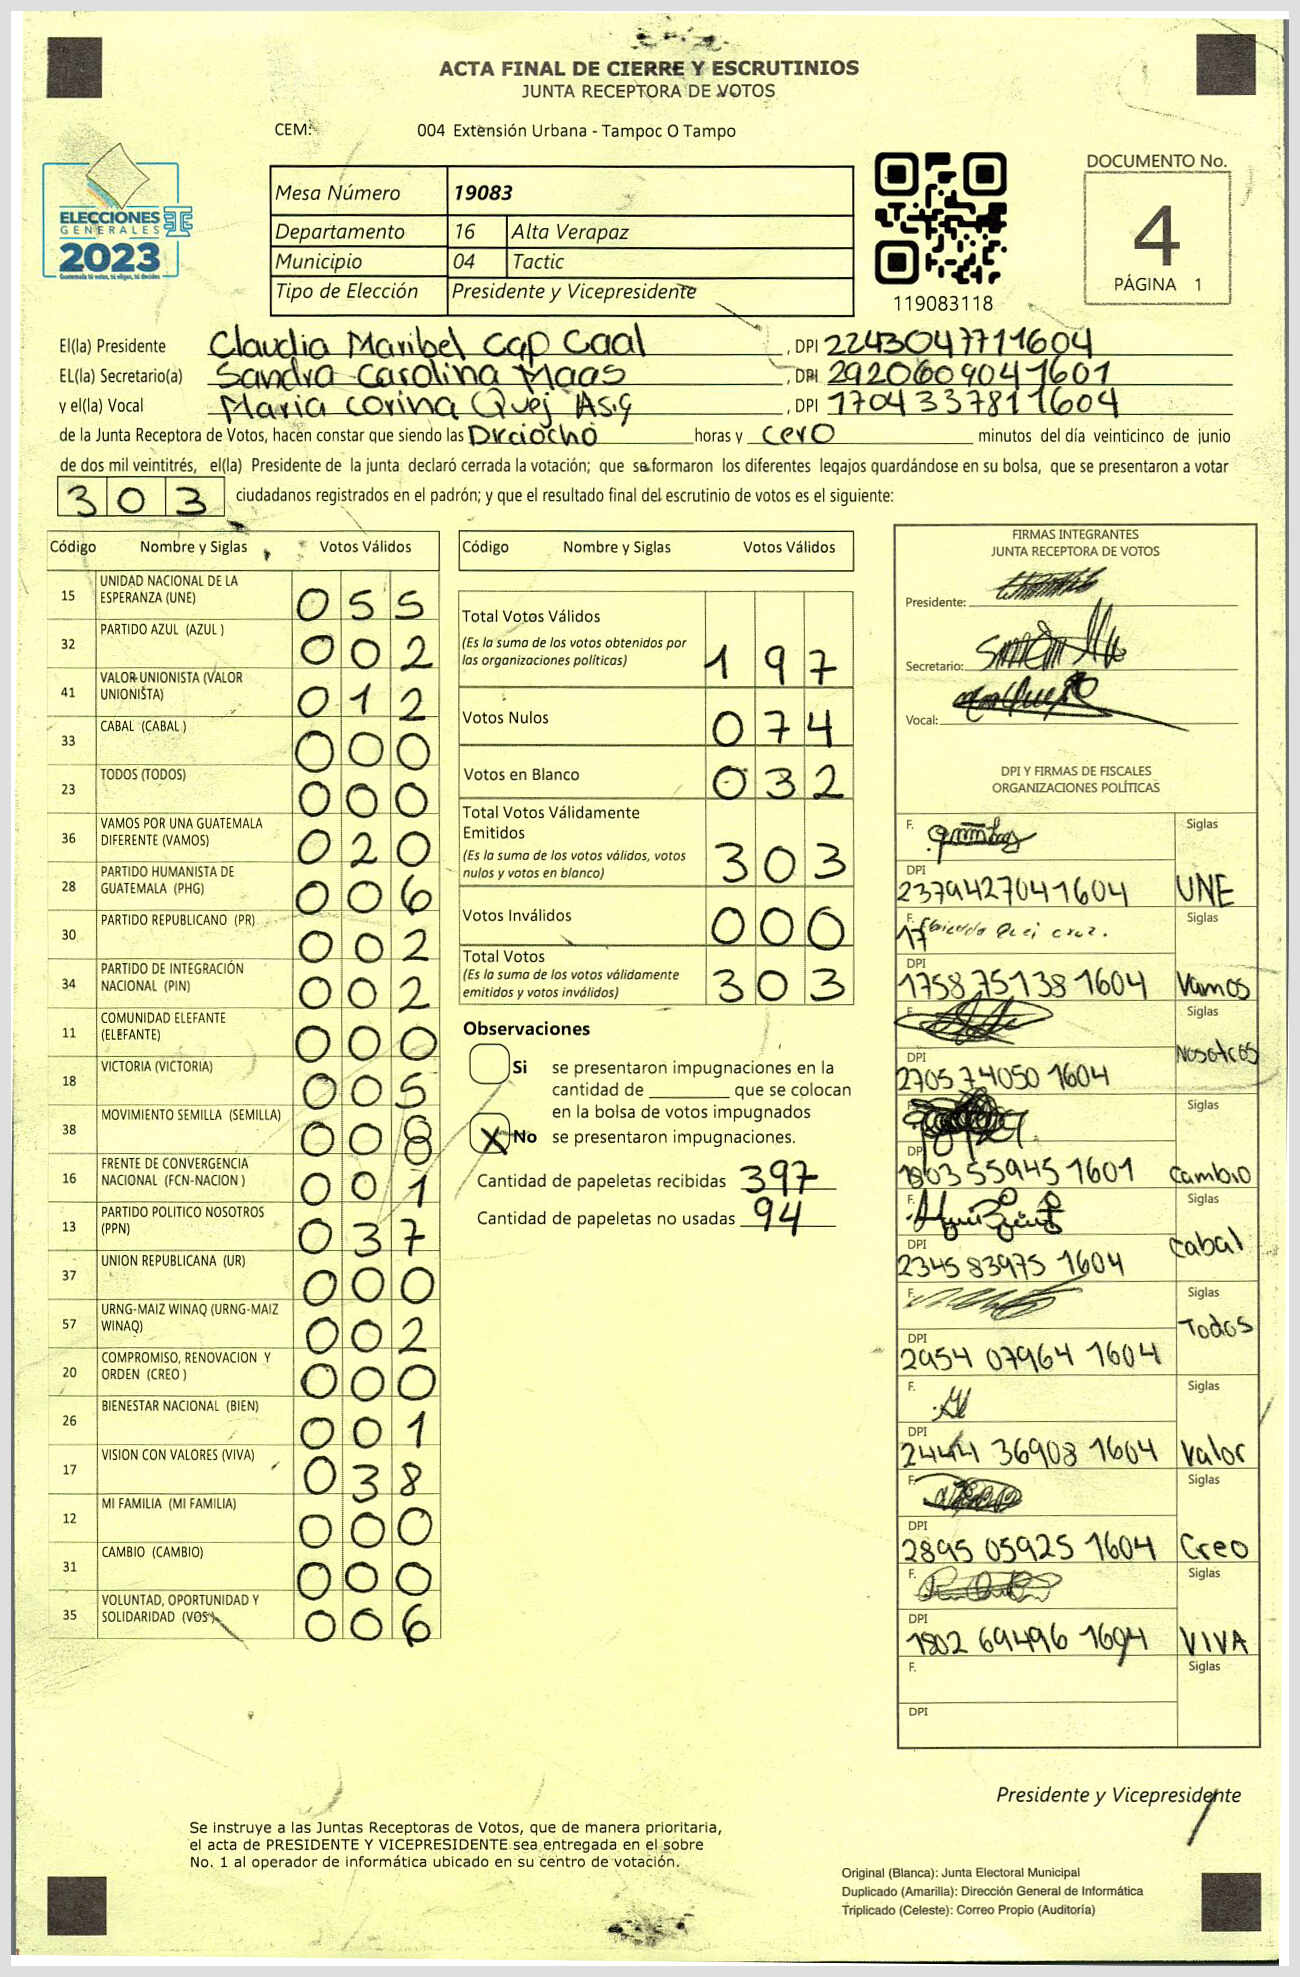 ACTA FINAL DE CIERRE Y ESCRUTINIOS
JUNTA RECEPTORA DE VOTOS
CEM: 004 Extensión Urbana - Tampoc O Tampo
ELECCIONES
GENERALES
2023
Mesa Número 19083
Departamento 16 Alta Verapaz
Municipio 04 Tactic
Tipo de Elección Presidente y Vicepresidente
119083118
DOCUMENTO No.
4
PÁGINA 1
El(la) Presidente Claudia Maribel Cap Caal, DPI 2243047711604
EL(la) Secretario(a) Sandra Carolina Maas, DPI 2920609041601
y el(la) Vocal Maria Corina Quej Asig, DPI 1704337811604
de la Junta Receptora de Votos, hacen constar que siendo las Dieciocho horas y cero minutos del día veinticinco de junio
de dos mil veintitrés, el(la) Presidente de la junta declaró cerrada la votación; que se formaron los diferentes legajos guardándose en su bolsa, que se presentaron a votar
303 ciudadanos registrados en el padrón; y que el resultado final del escrutinio de votos es el siguiente:
Código Nombre y Siglas Votos Válidos
15 UNIDAD NACIONAL DE LA ESPERANZA (UNE) 055
32 PARTIDO AZUL (AZUL ) 002
41 VALOR-UNIONISTA (VALOR UNIONISTA) 012
33 CABAL (CABAL ) 000
23 TODOS (TODOS) 000
36 VAMOS POR UNA GUATEMALA DIFERENTE (VAMOS) 020
28 PARTIDO HUMANISTA DE GUATEMALA (PHG) 006
30 PARTIDO REPUBLICANO (PR) 002
34 PARTIDO DE INTEGRACIÓN NACIONAL (PIN) 002
11 COMUNIDAD ELEFANTE (ELEFANTE) 000
18 VICTORIA (VICTORIA) 005
38 MOVIMIENTO SEMILLA (SEMILLA) 008
16 FRENTE DE CONVERGENCIA NACIONAL (FCN-NACION ) 001
13 PARTIDO POLITICO NOSOTROS (PPN) 037
37 UNION REPUBLICANA (UR) 000
57 URNG-MAIZ WINAQ (URNG-MAIZ WINAQ) 002
20 COMPROMISO, RENOVACION Y ORDEN (CREO ) 000
26 BIENESTAR NACIONAL (BIEN) 001
17 VISION CON VALORES (VIVA) 038
12 MI FAMILIA (MI FAMILIA) 000
31 CAMBIO (CAMBIO) 000
35 VOLUNTAD, OPORTUNIDAD Y SOLIDARIDAD (VOS ) 006
Código Nombre y Siglas Votos Válidos
Total Votos Válidos 197
(Es la suma de los votos obtenidos por
las organizaciones políticas)
Votos Nulos 074
Votos en Blanco 032
Total Votos Válidamente
Emitidos 303
(Es la suma de los votos válidos, votos
nulos y votos en blanco)
Votos Inválidos 000
Total Votos 303
(Es la suma de los votos válidamente
emitidos y votos inválidos)
Observaciones
Si se presentaron impugnaciones en la
cantidad de que se colocan
en la bolsa de votos impugnados
X No se presentaron impugnaciones.
Cantidad de papeletas recibidas 397
Cantidad de papeletas no usadas 94
FIRMAS INTEGRANTES
JUNTA RECEPTORA DE VOTOS
Presidente:
Secretario:
Vocal:
DPI Y FIRMAS DE FISCALES
ORGANIZACIONES POLÍTICAS
F. Siglas
DPI
2379427041604 UNE
F. Siglas
DPI
1758 75138 1604 Vamos
F. Siglas
DPI
2705 74050 1604 Nosotros
F. Siglas
DPI
1803 55945 1601 Cambio
F. Siglas
DPI
2345 83975 1604 Cabal
F. Siglas
DPI
2954 07964 1604 Todos
F. Siglas
DPI
2444 36908 1604 Valor
F. Siglas
DPI
2895 05925 1604 Creo
F. Siglas
DPI
1802 69496 1604 VIVA
F. Siglas
DPI
Presidente y Vicepresidente
Se instruye a las Juntas Receptoras de Votos, que de manera prioritaria,
el acta de PRESIDENTE Y VICEPRESIDENTE sea entregada en el sobre
No. 1 al operador de informática ubicado en su centro de votación.
Original (Blanca): Junta Electoral Municipal
Duplicado (Amarilla): Dirección General de Informática
Triplicado (Celeste): Correo Propio (Auditoría)